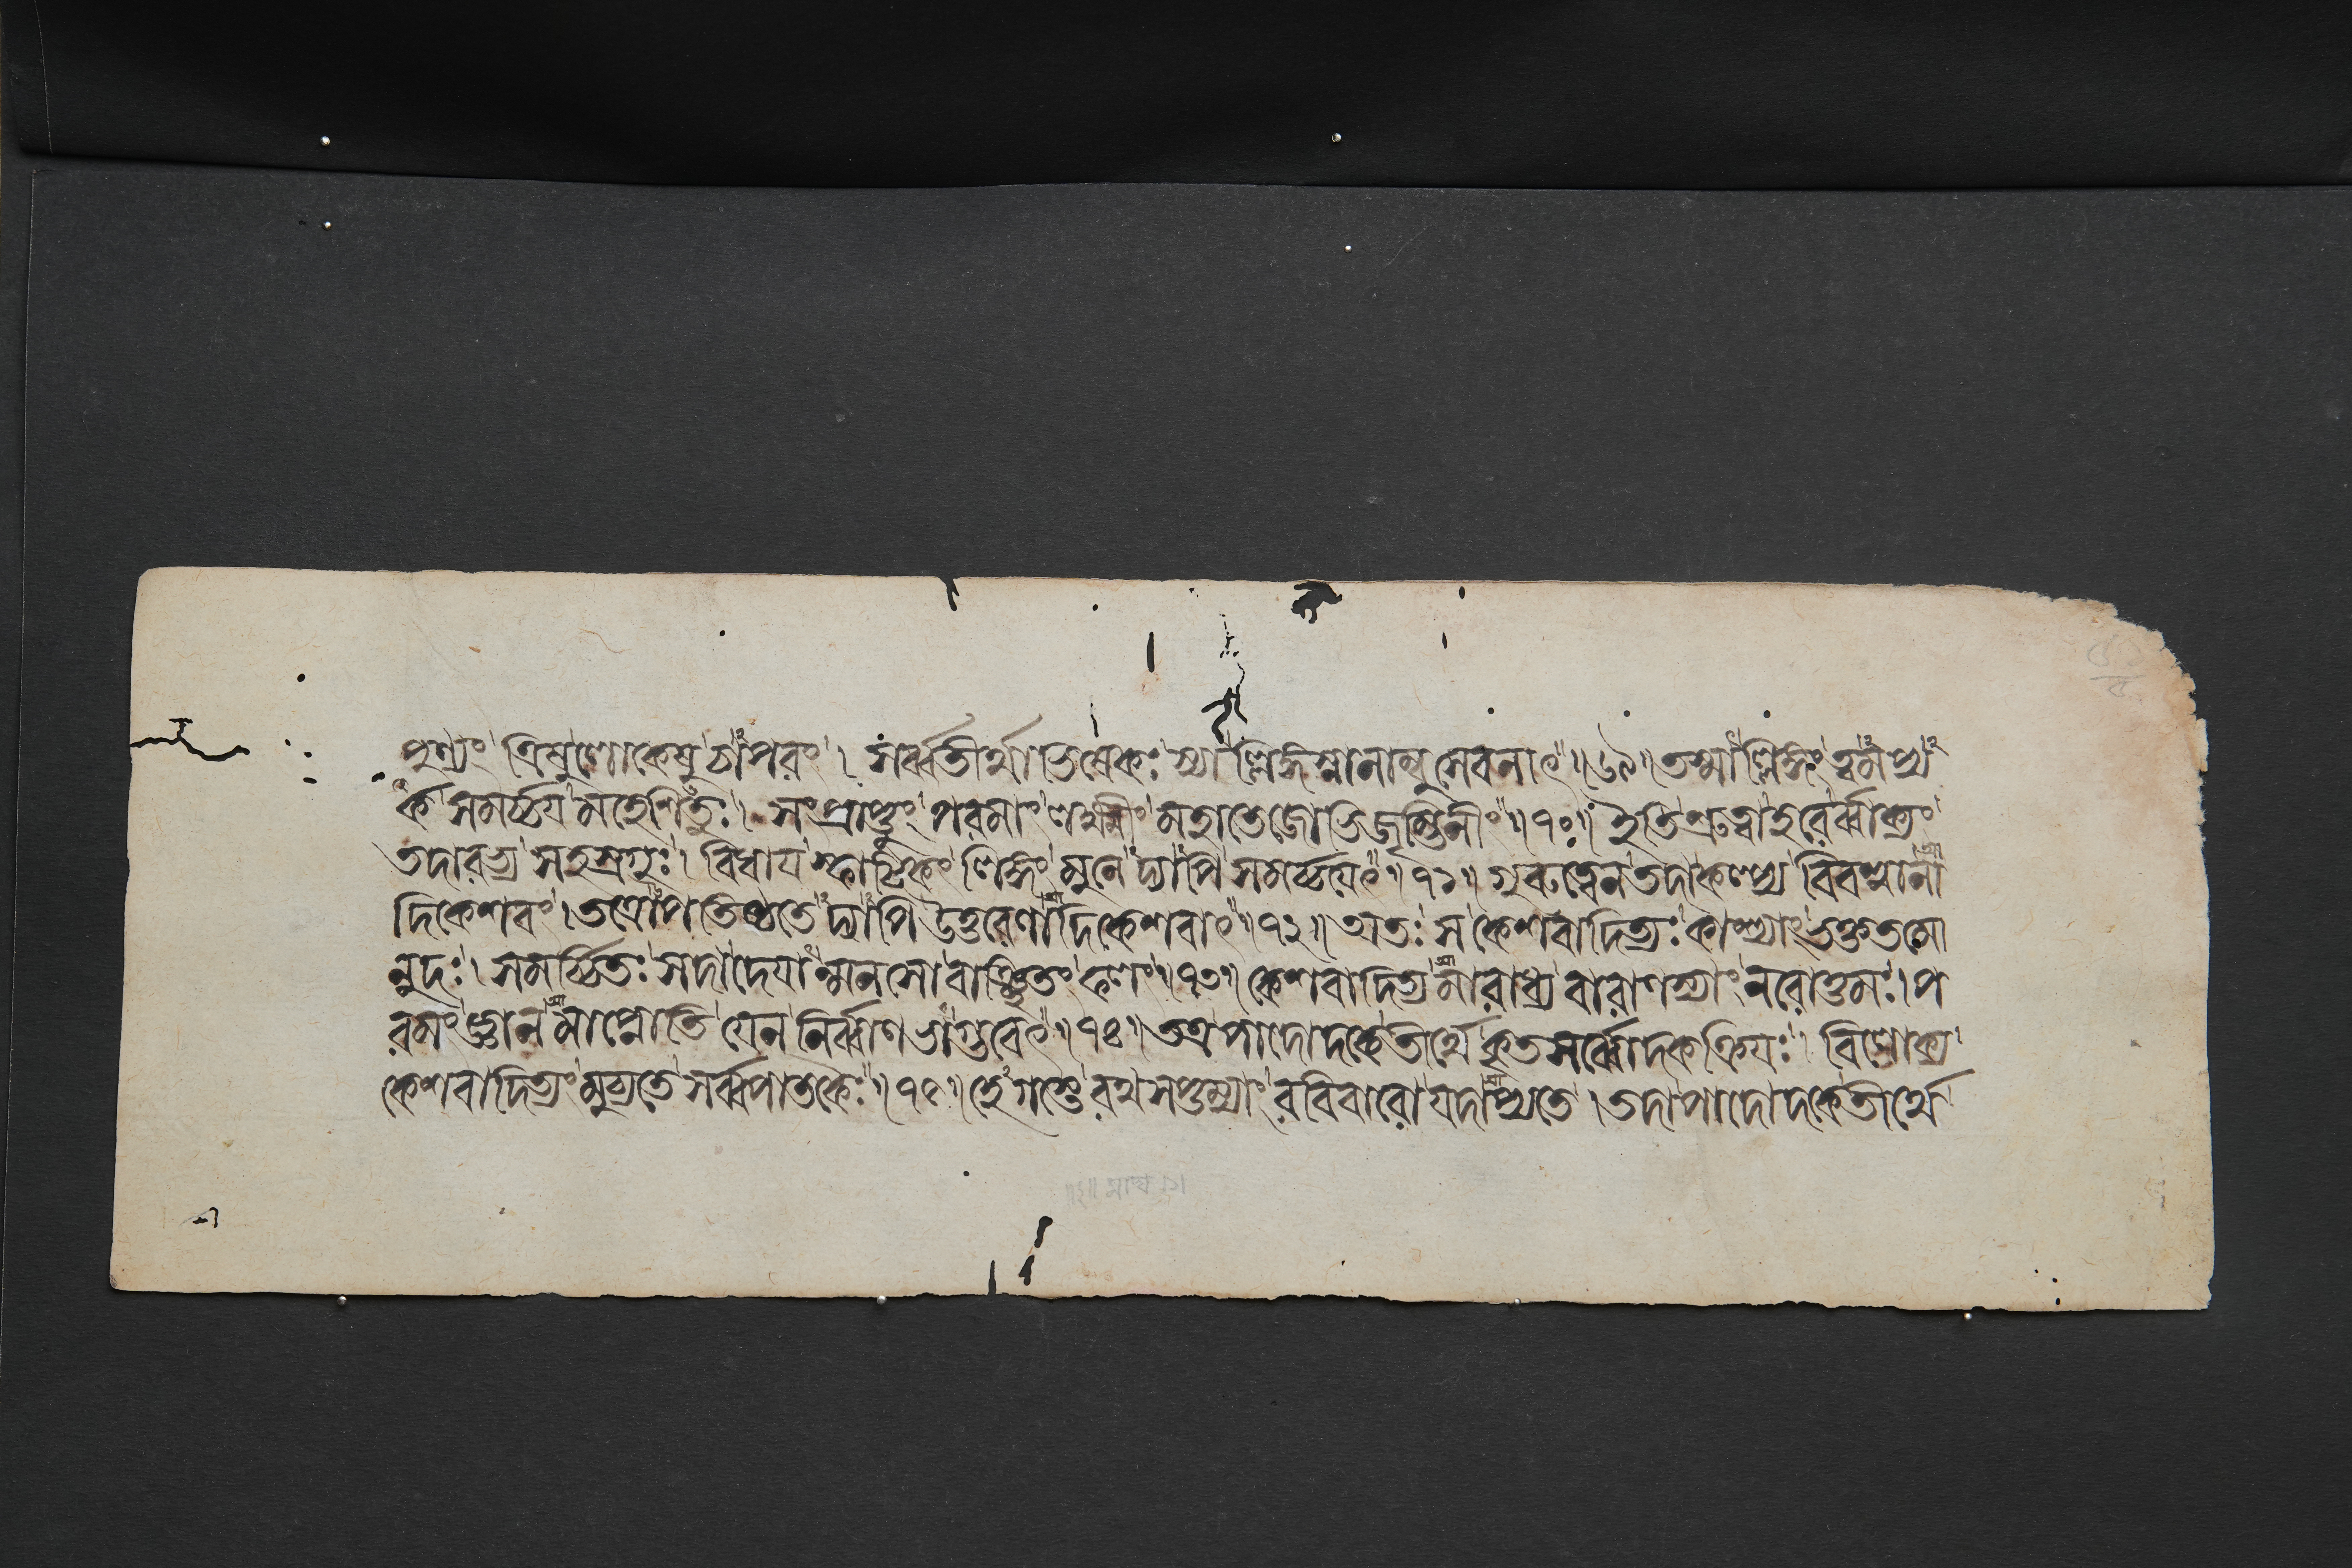 পুণ্যং ত্রিষু লোকেষু চাপরং । সর্ব্বতীর্থাভিষেকঃ স্যাল্লিঙ্গস্নানাম্বুসেবনাৎ ॥ ৬৯ ॥ তস্মাল্লিঙ্গং ত্বমপ্য
র্ক সমর্চ্চয় মহেশিতুঃ । সংপ্রাপ্তুং পরমাং লক্ষ্মীং মহাতেজোভিজৃম্ভিনীং ॥ ৭০ ॥ ইতি শ্রুত্বা হরের্ব্বাক্যং
তদারভ্য সহস্রগুঃ । বিধায় স্ফাটিকং লিঙ্গং মুনেদ্যাপি সমর্চ্চয়েৎ ॥ ৭১ ॥ গুরুত্বেন তদাকল্প্য বিবস্বানা
দিকেশবং । তত্রোপতিষ্ঠতেদ্যাপি উত্তরেণাদিকেশবাৎ ॥ ৭২ ॥ অতঃ স কেশবাদিত্যঃ কাশ্যাং ভক্ততমো
নুদঃ । সমর্চ্চিতঃ সদা দেয়ান্মনসো বাঞ্ছিতং ফলং ॥ ৭৩ ॥ কেশবাদিত্যমারাধ্য বারাণস্যাং নরোত্তমঃ । প
রমং জ্ঞানমাপ্নোতি যেন নির্ব্বাণভাগ্ভবেৎ ॥ ৭৪ ॥ তত্র পাদোদকে তীর্থে কৃতসর্ব্বোদকক্রিয়ঃ । বিলোক্য
কেশবাদিত্যং মুচ্যতে সর্ব্বপাতকৈঃ ॥ ৭৫ ॥ হেগস্তে রথসপ্তম্যাং রবিবারো যদাপ্যতে । তদা পাদোদকে তীর্থে